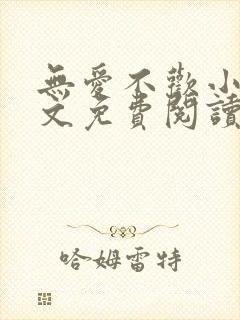 無愛不歡小
文免費閱讀
哈姆雷特